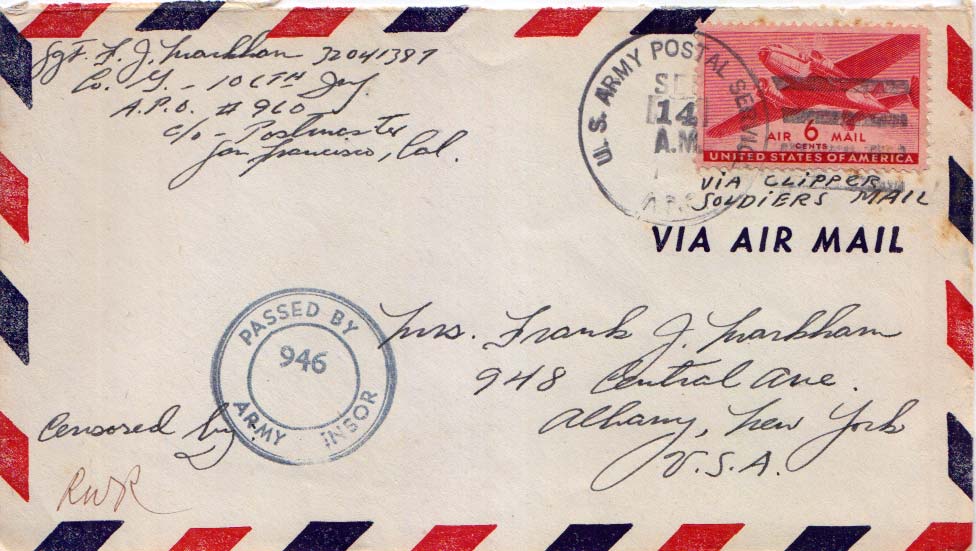 Sgt. F. J. Markham 32041387
Co. G. - 106TH Inf
A.P.O. # 960
c/o - Postmaster
San Francisco, Cal.
U. S. ARMY POSTAL SERVICE
SE
14
A.M.
A.P.O.
AIR 6 MAIL
CENTS
UNITED STATES OF AMERICA
VIA CLIPPER
SOLDIERS MAIL
VIA AIR MAIL
PASSED BY
946
ARMY INSOR
Mrs. Frank J. Markham
948 Central Ave.
Albany, New York
U.S.A.
Censored by
RWR